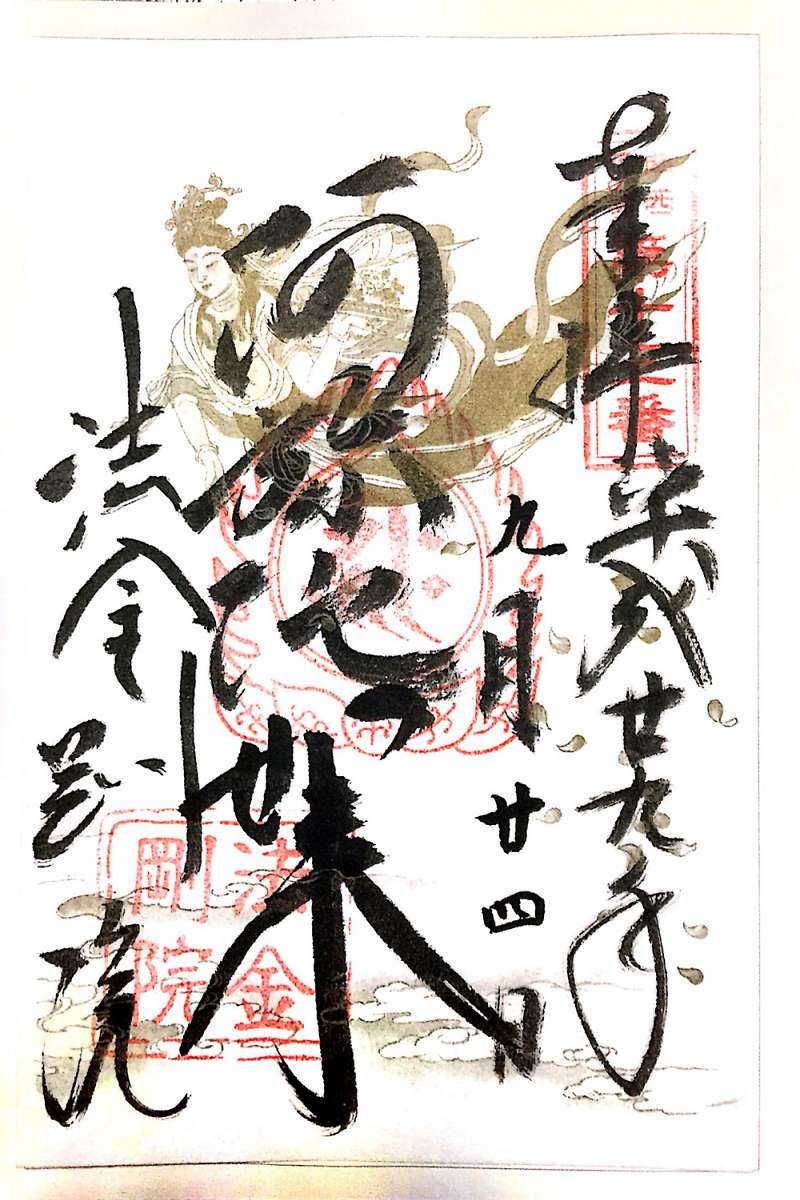 奉拝
平成廿九年
九月廿四日
阿弥陀如来
法金剛院
法金
剛院